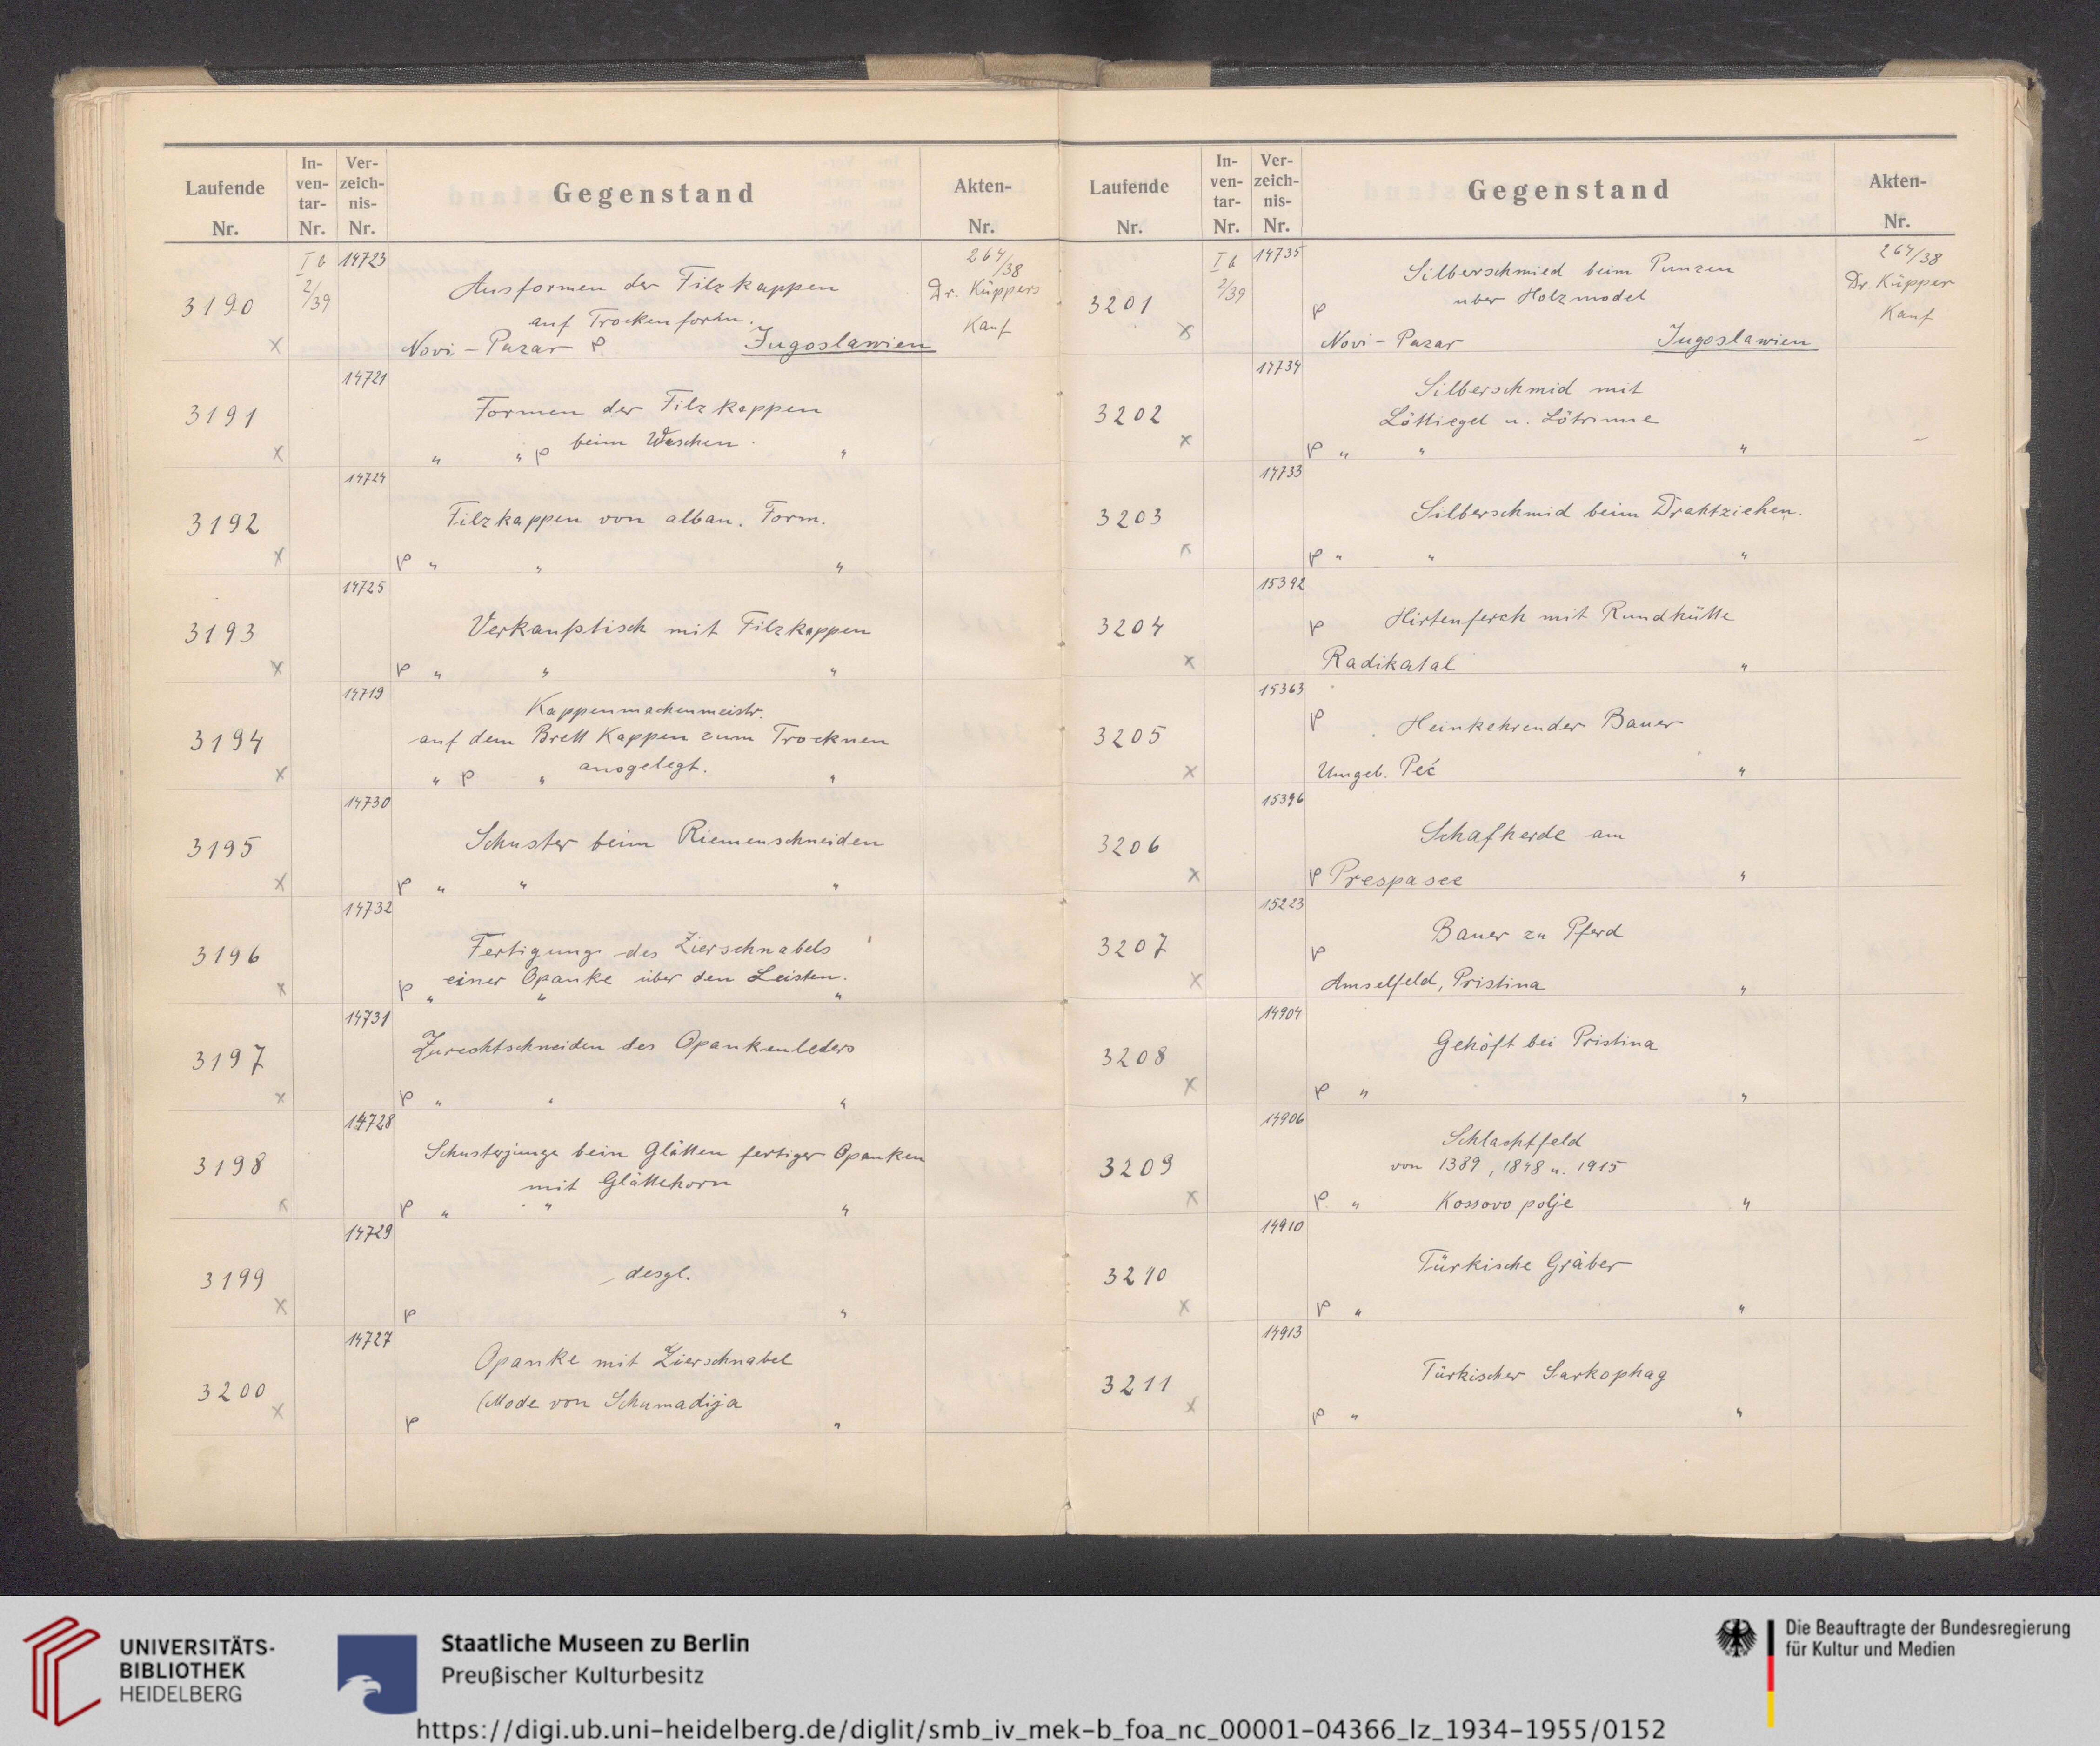 Laufende Nr. In- ven- tar- Nr. Ver- zeich- nis- Nr. Gegenstand Akten- Nr.
3190 I b 2/39 14723 Ausformen der Filzkappen 264/38
auf Trockenform. Dr. Küppers
x Novi-Pazar P. Jugoslawien Kauf
3191 14721 Formen der Filzkappen
x " " P beim Waschen. "
3192 14724 Filzkappen von alban. Form.
x P " " "
3193 14725 Verkaufstisch mit Filzkappen
x P " " "
14719 Kappenmachenmeistr.
3194 auf dem Brett Kappen zum Trocknen
x " P " ausgelegt. "
3195 14730 Schuster beim Riemenschneiden
x P " " "
3196 14732 Fertigung des Zierschnabels
einer Opanke über den Leisten.
x P " " "
3197 14731 Zurechtschneiden des Opankenleders
x P " " "
3198 14728 Schusterjunge beim Glätten fertiger Opanken
mit Glätthorn
x P " " "
3199 14729 desgl.
x P "
3200 14727 Opanke mit Zierschnabel
(Mode von Schumadija
x P "
Laufende Nr. In- ven- tar- Nr. Ver- zeich- nis- Nr. Gegenstand Akten- Nr.
3201 I b 2/39 14735 Silberschmied beim Punzen 264/38
P über Holzmodel Dr. Küpper
x Novi-Pazar Jugoslawien Kauf
3202 14734 Silberschmid mit
Löttiegel u. Lötrinne
x P " " "
3203 14733 Silberschmid beim Drahtziehen.
x P " " "
3204 15392 P Hirtenferch mit Rundhütte
x Radikatal "
3205 15363 P Heimkehrender Bauer
x Umgeb. Peć "
3206 15396 Schafherde am
x P Prespasee "
3207 15223 Bauer zu Pferd
P
x Amselfeld, Pristina "
3208 14904 Gehöft bei Pristina
x P " "
14906 Schlachtfeld
3209 von 1389, 1848 u. 1915
x P. " Kossovo polje "
3210 14910 Türkische Gräber
x P " "
3211 14913 Türkischer Sarkophag
x P " "
UNIVERSITÄTS-
BIBLIOTHEK
HEIDELBERG
Staatliche Museen zu Berlin
Preußischer Kulturbesitz
Die Beauftragte der Bundesregierung
für Kultur und Medien
https://digi.ub.uni-heidelberg.de/diglit/smb_iv_mek-b_foa_nc_00001-04366_lz_1934-1955/0152